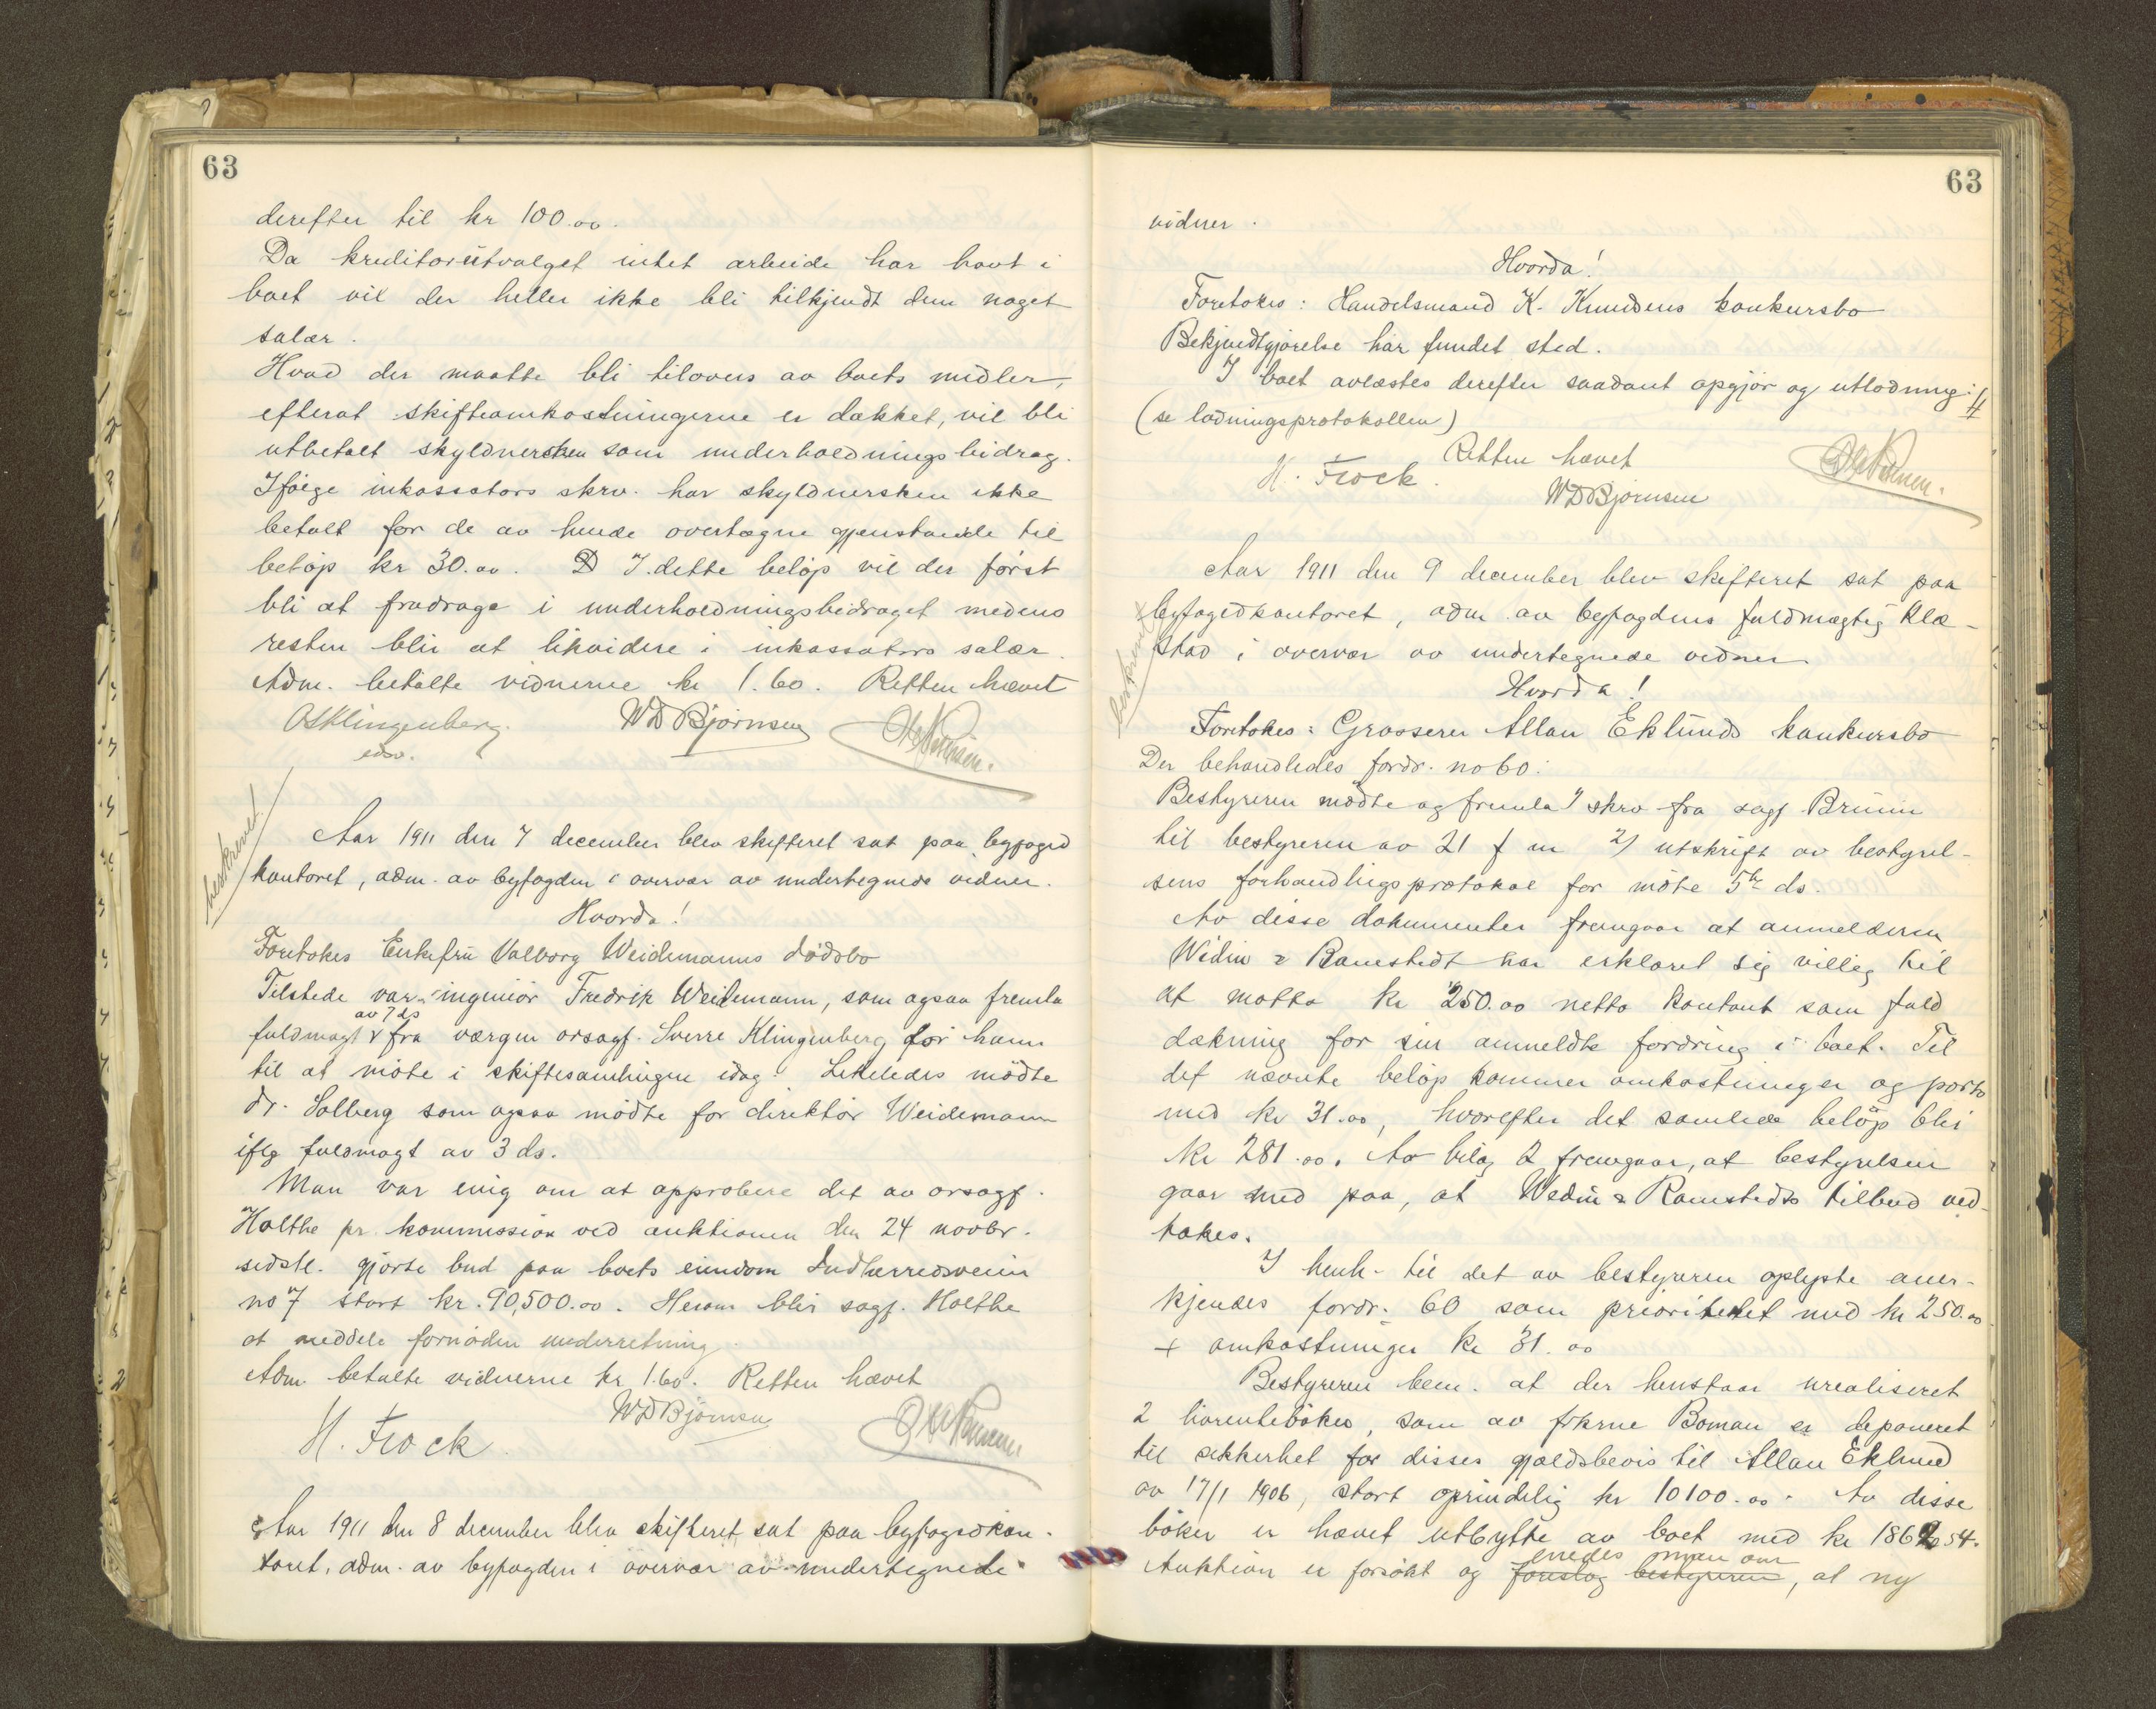 63
derefter til kr 100.00.
Da kreditorutvalget intet arbeide har havt i
boet vil der heller ikke bli tilkjendt dem noget
salær.
Hvad der maatte bli tilovers av boets midler,
efterat skifteomkostningerne er dækket, vil bli
utbetalt skyldnersken som underholdningsbidrag.
Ifølge inkassators skrv. har skyldnersken ikke
betalt for de av hende overtagne gjenstande til
beløp kr 30.00. I dette beløp vil der først
bli at fradrage i underholdningsbidraget medens
resten blir at likvidere i inkassators salær.
Adm. betalte vidnerne kr 1.60. Retten hævet
O Klingenberg. WD Bjørnsen
edsv.
beskrevet
Aar 1911 den 7 december blev skifteret sat paa byfoged
kontoret, adm. av byfogden i overvær av undertegnede vidner.
Hvorda!
Foretokes Enkefru Valborg Weidemanns dødsbo
Tilstede var ingeniør Fredrik Weidemann, som ogsaa fremla
av 7 ds
fuldmagt fra værgen orsagf. Sverre Klingenberg for ham
til at møte i skiftesamlingen idag. Likeledes mødte
dr. Solberg som ogsaa mødte for direktør Weidemann
iflg fuldmagt av 3 ds.
Man var enig om at approbere det av orsagf.
Holthe pr. kommission ved auktionen den 24 novbr.
sidstl. gjorte bud paa boets eiendom Indherredsveien
no 7 stort kr. 90,500.00. Herom blir sagf. Holthe
at meddele fornøden underretning.
Adm. betalte vidnerne kr 1.60. Retten hævet
H. Frock WD Bjørnsen
Aar 1911 den 8 december blev skifteret sat paa byfogedkon-
toret, adm. av byfogden i overvær av undertegnede
63
vidner.
Hvorda!
Foretokes: Handelsmand K. Knudsens konkursbo
Bekjendtgjørelse har fundet sted.
I boet avlæstes derefter saadant opgjør og utlodning:
(se lodningsprotokollen)
Retten hævet
H. Frock. WD Bjørnsen
Aar 1911 den 9 december blev skifteret sat paa
byfogedkontoret, adm. av byfogdens fuldmægtig Klæ-
stad i overvær av undertegnede vidner
beskrevet
Hvorda!
Foretokes: Grosserer Allan Eklunds konkursbo
Der behandledes fordr. no 60:
Bestyreren mødte og fremla 1) skrv fra sagf Bruun
til bestyreren av 21 f m 2) utskrift av bestyrel-
sens forhandligsprotokol for møte 5te ds.
Av disse dokumenter fremgaar at anmelderen
Wedin & Ramstedt har erklæret sig villig til
at motta kr 250.00 netto kontant som fuld
dækning for sin anmeldte fordring i boet. Til
det nævnte beløp kommer omkostninger og porto
med kr 31.00, hvorefter det samlede beløp blir
kr 281.00. Av bilag 2 fremgaar, at bestyrelsen
gaar med paa, at Wedin & Ramstedts tilbud ved-
tokes.
I henh. til det av bestyreren oplyste aner-
kjendes fordr. 60 som prioritetet med kr 250.00
+ omkostninger kr 31.00
Bestyreren bem. at der henstaar urealiseret
2 livrentebøker, som av frkrne Boman er deponeret
til sikkerhet for disses gjældsbevis til Allan Eklund
av 17/1 1906, stort oprindelig kr 10100.00. Av disse
bøker er hævet utbytte av boet med kr 1862.54.
enedes man om
Auktion er forsøkt og foreslog bestyreren, at ny